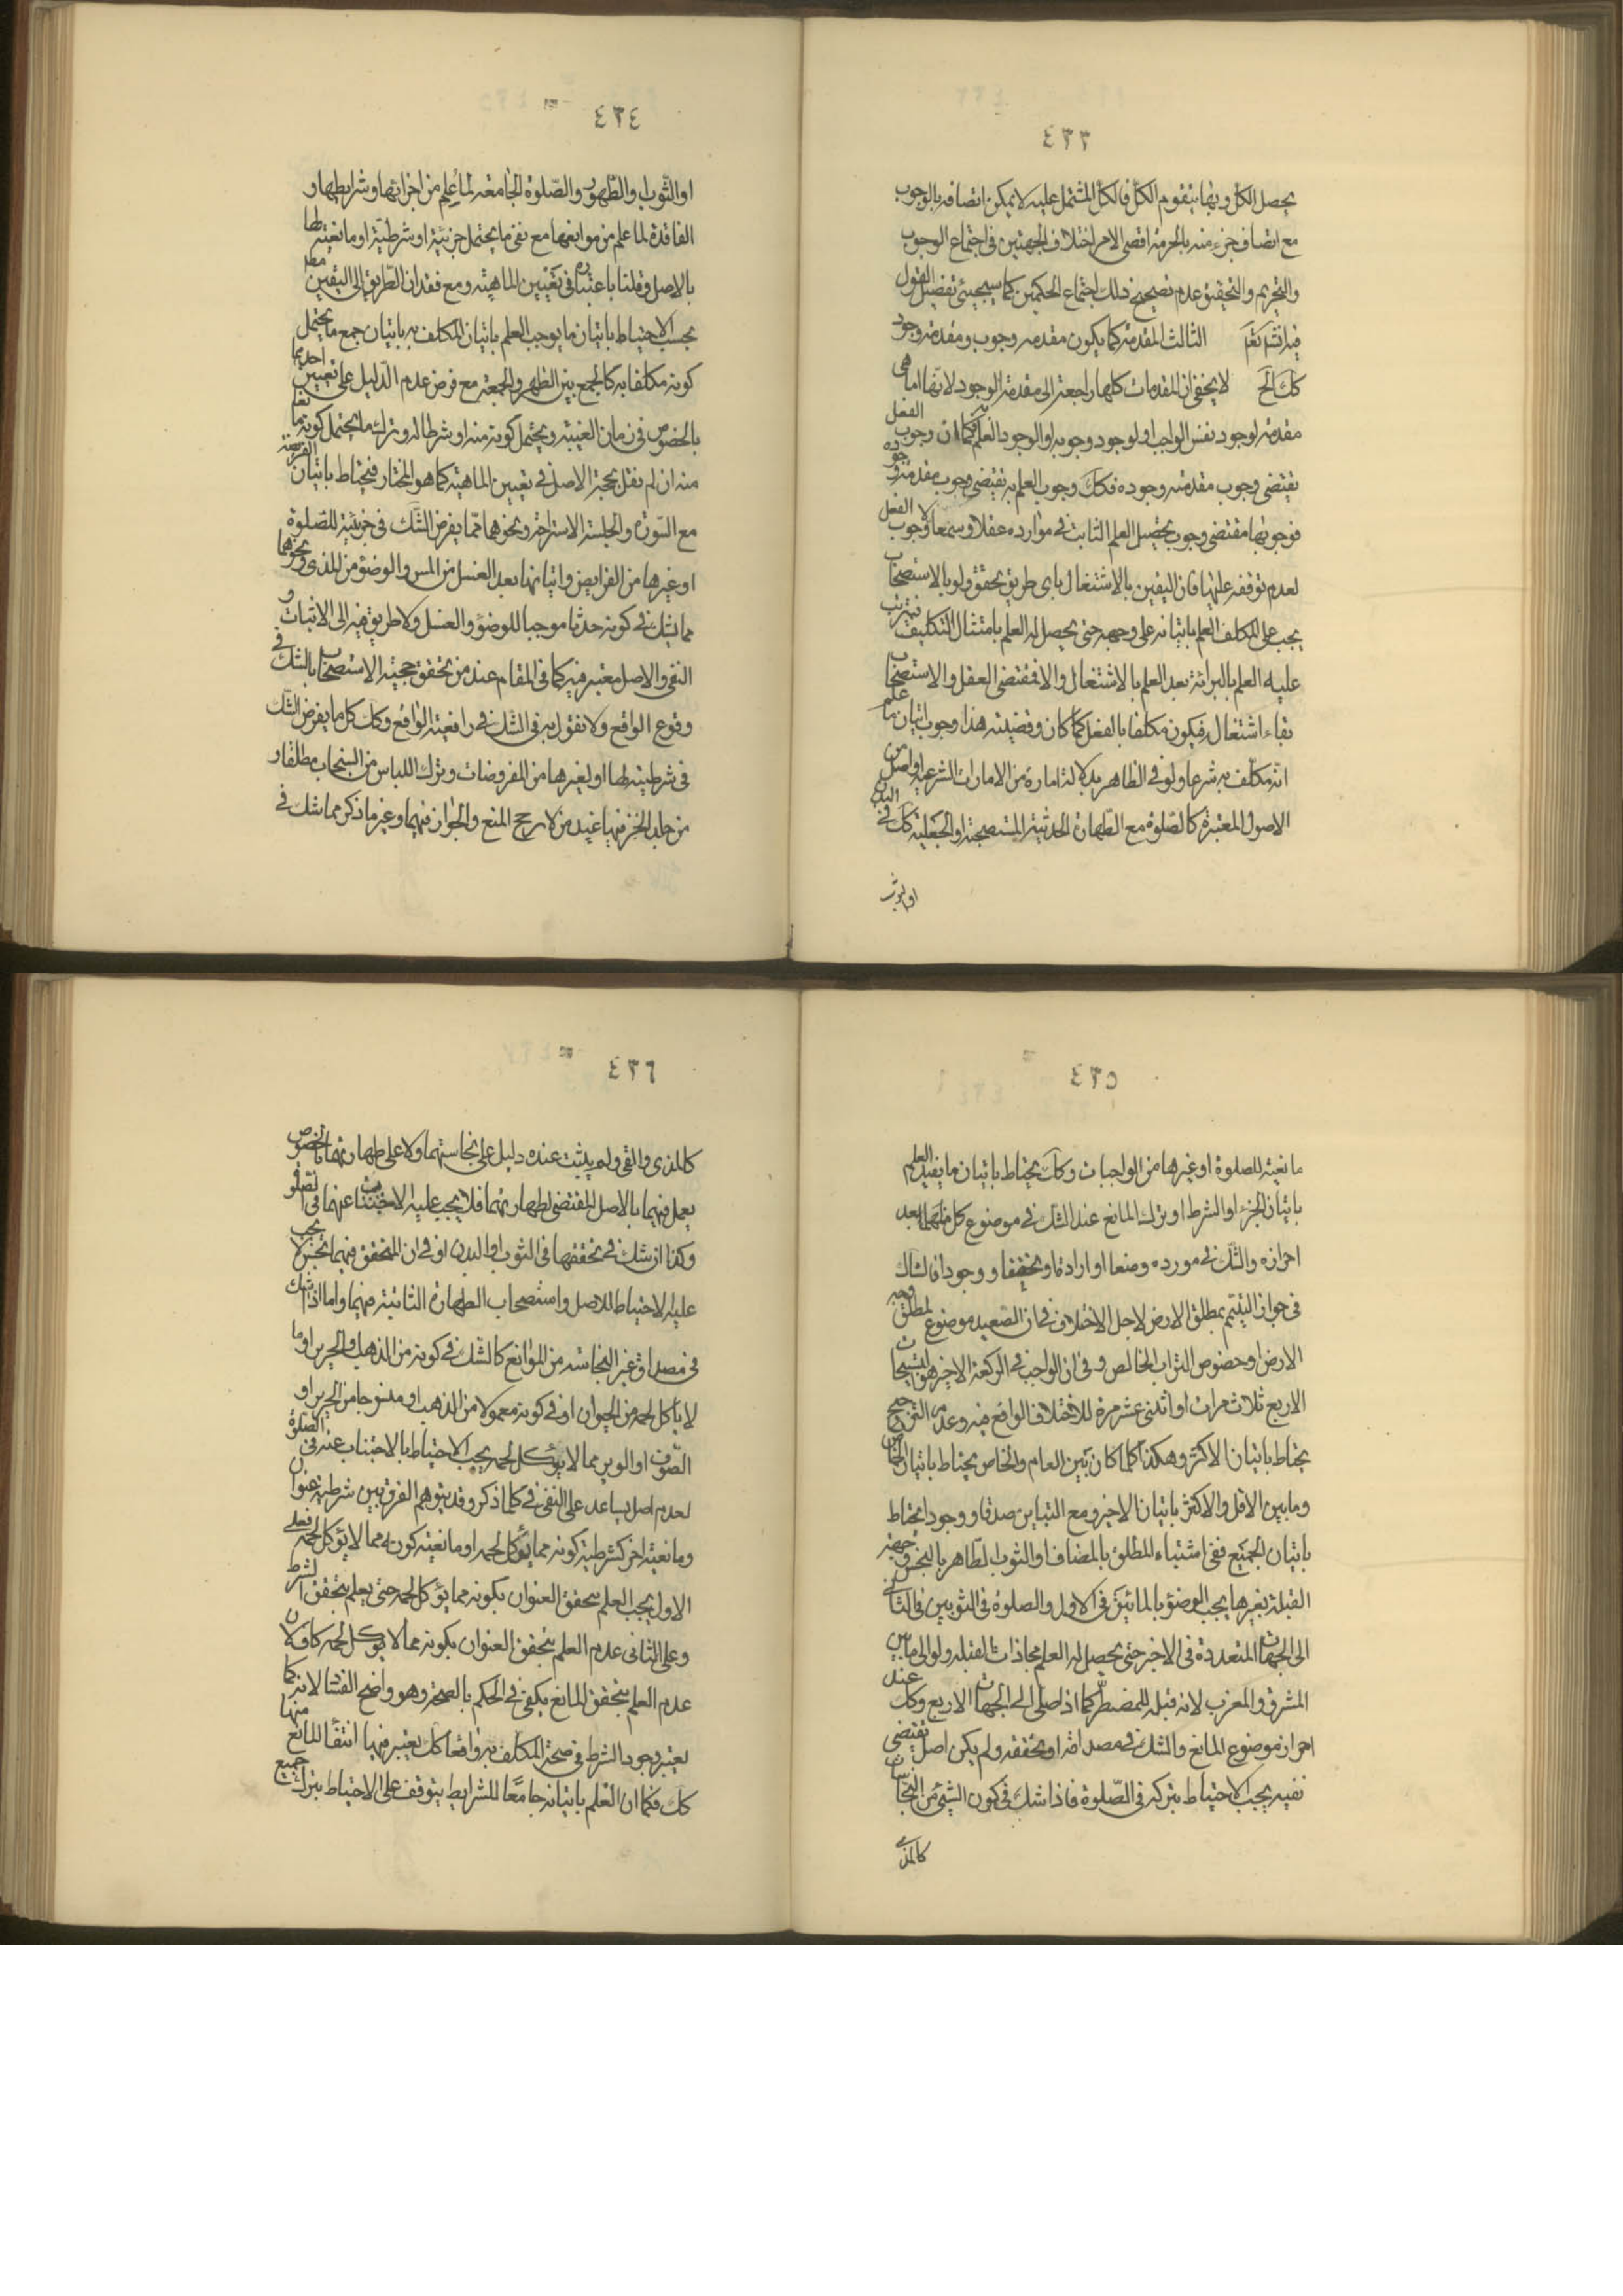 ٤٣٣
يحصل الكل وبها يتقوم الكل فالكل المشتمل عليه لا يمكن اتصافه بالوجوب
مع اتصاف جزء منه بالحرمة اقصى الامر اختلاف الجهتين فى اجتماع الوجوب
والتحريم والتحقيق عدم تصحيح ذلك اجتماع الحكمين كما سيجيئ تفصيل القول
فيه انش تع الثالث المقدمة كما يكون مقدمه وجوب ومقدمة وجود
كك الخ لا يخفى ان المقدمات كلها راجعة الى مقدمة الوجود لانها اما هى
مقدمة لوجود نفس الواجب او لوجود وجوبه او الوجود العلم به فكما ان وجوب الفعل
يقتضى وجوب مقدمة وجوده فكك وجوب العلم به يقتضى وجوب مقدمة وجوده
فوجوبها مقتضى وجوب تحصيل العلم الثابت فى موارده عقلا وسمعا لا وجوب الفعل
لعدم توقفه عليها فان اليقين بالاشتغال باى طريق تحقق ولو بالاستصحاب
يجب على المكلف العلم باتيانه على وجهه حتى يحصل له العلم بامتثال التكليف فيترتب
عليه العلم بالبرائة بعد العلم بالاشتغال والا فمقتضى العقل والاستصحاب
بقاء اشتغاله فيكون مكلفا بالفعل كما كان وقضيته هذا وجوب اتيان ما علم
انه مكلف به شرعا ولو فى الظاهر بدلالة امارة من الامارات الشرعية او اصل من
الاصول المعتبرة كالصلوة مع الطهارة الحدثية المستصحبة او الخبثية كك فى البدن
او الثوب
٤٣٤
او الثوب او الطهور والصلوة الجامعة لما علم من اجزائها وشرايطها و
الفاقدة لما علم من موانعها مع نفى ما يحتمل جزئية او شرطية او مانعيته لها
بالاصل وقلنا باعتباره فى تعيين الماهية ومع فقدان الطريق الى اليقين مط
يجب الاحتياط باتيان ما يوجب العلم باتيان المكلف به باتيان جمع ما يحتمل
كونه مكلفا به كالجمع بين الظهر والجمعة مع فرض عدم الدليل على تعيين احديهما
بالخصوص فى زمان الغيبة ويحتمل كونه منه او شرطا له وترك ما يحتمل كونه مانعا
منه ان لم نقل بحجية الاصل فى تعيين الماهية كما هو المختار فيحتاط باتيان الفريضة
مع السورة والجلسة الاستراحة ونحوهما مما يفرض الشك فى جزئية للصلوة
او غيرها من الفرايض واتيانها بعد الغسل من المس والوضوء من المذى ونحوهما
مما يشك فى كونه حدثا موجبا للوضوء والغسل ولا طريق فيه الى الاثبات و
النفى والاصل معتبر فيه كما فى المقام عند من تحقق حجية الاستصحاب بالشك فى
وقوع الواقع ولا نقول به فى الشك فى رافعية الواقع وكك كل ما يفرض الشك
فى شرطيته لها او لغيرها من المفروضات وترك اللباس من السنجاب مطلقا و
من جلد الخز فيها عند من لا يرجح المنع والجواز فيهما وغير ما ذكر مما شك فى
٤٣٥
مانعية للصلوة او غيرها من الواجبات وكك يحتاط باتيان ما يفيد العلم
باتيان الجزء او الشرط او ترك المانع عند الشك فى موضوع كل منهما بعد
احرازه والشك فى مورده وضعا او ارادة او تحققا و وجودا فالشاك
فى جواز التيمم بمطلق الارض لاجل الاختلاف فى ان الصعيد موضوع لمطلق وجه
الارض او خصوص التراب الخالص وفى ان الواجب فى الركعة الاخيرة هو التسبيحات
الاربع ثلاث مرات او اثنتى عشر مرة للاختلاف الواقع فيه وعدم الترجيح
يحتاط باتيان الاكثر وهكذا كلما كان بين العام والخاص يحتاط باتيان الخاص
وما بين الاقل والاكثر باتيان الاخير ومع التباين صدقا و وجودا يحتاط
باتيان الجميع ففى اشتباه المطلق بالمضاف او الثوب الطاهر بالنجس وجهة
القبلة بغيرها يجب الوضوء بالمائين فى الاول والصلوة فى الثوبين فى الثانى
الى الجهات المتعددة فى الاخير حتى يحصل له العلم بمحاذات القبله ولو الى ما بين
المشرق والمغرب لانه قبلة للمضطر كما اذا صلى الى الجهات الاربع وكك عند
احراز موضوع المانع والشك فى مصداقه او تحققه ولم يكن اصل يقتضى
نفيه يجب الاحتياط بتركه فى الصلوة فاذا شك فى كون الشيئ من النجاسات
كالمذى
٤٣٦
كالمذى والقى ولم يثبت عنده دليل على نجاستهما ولا على طهارتهما بالخصوص
يعمل فيهما بالاصل المقتضى لطهارتهما فلا يجب عليه الاجتناب عنهما فى الصلوة
وكذا ان شك فى تحققها فى الثوب او البدن او فى ان المتحقق فيهما نجس لا يجب
عليه الاحتياط للاصل واستصحاب الطهارة الثابتة فيهما واما اذا شك
فى مصداق غير النجاسة من الموانع كالشك فى كونه من الذهب والحرير او ما
لا يأكل لحمه من الحيوان او فى كونه معمولا من الذهب او منسوجا من الحرير او
الصوف او الوبر مما لا يؤكل لحمه يجب الاحتياط بالاجتناب عنه فى الصلوة
لعدم اصل يساعد على النفى فى كلما ذكر وقد يتوهم الفرق بين شرطية عنوان
ومانعية اخر كشرطية كونه مما يؤكل لحمه او مانعية كونه مما لا يؤكل لحمه فعلى
الاول يجب العلم بتحقق العنوان بكونه مما يؤكل لحمه حتى يعلم بتحقق الشرط
وعلى الثانى عدم العلم بتحقق العنوان بكونه مما لا يؤكل لحمه كاف لان
عدم العلم بتحقق المانع يكفى فى الحكم بالصحة وهو واضح الفساد لانه كما
يعتبر وجود الشرط فى صحة المكلف به واقعا كك يعتبر فيها انتفاء المانع منها
كك فكما ان العلم باتيانه جامعا للشرايط يتوقف على الاحتياط بترك جميع